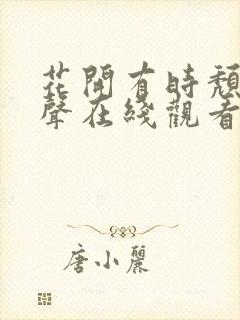 花開有時頹
聲在綫觀看
唐小麗